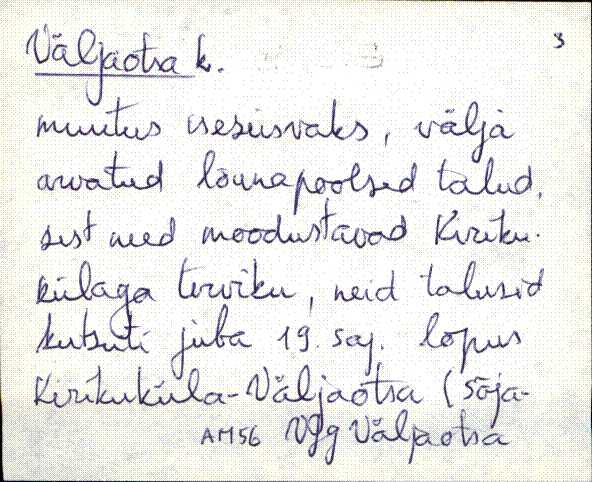 Väljaotsa k. 3
muutus iseseisvaks, välja
arvatud lõunapoolsed talud,
sest need moodustavad Kiriku-
külaga terviku, neid talusid
kutsuti juba 19. saj. lõpus
Kirikuküla-Väljaotsa (sõja-
AM56 Vjg Väljaotsa